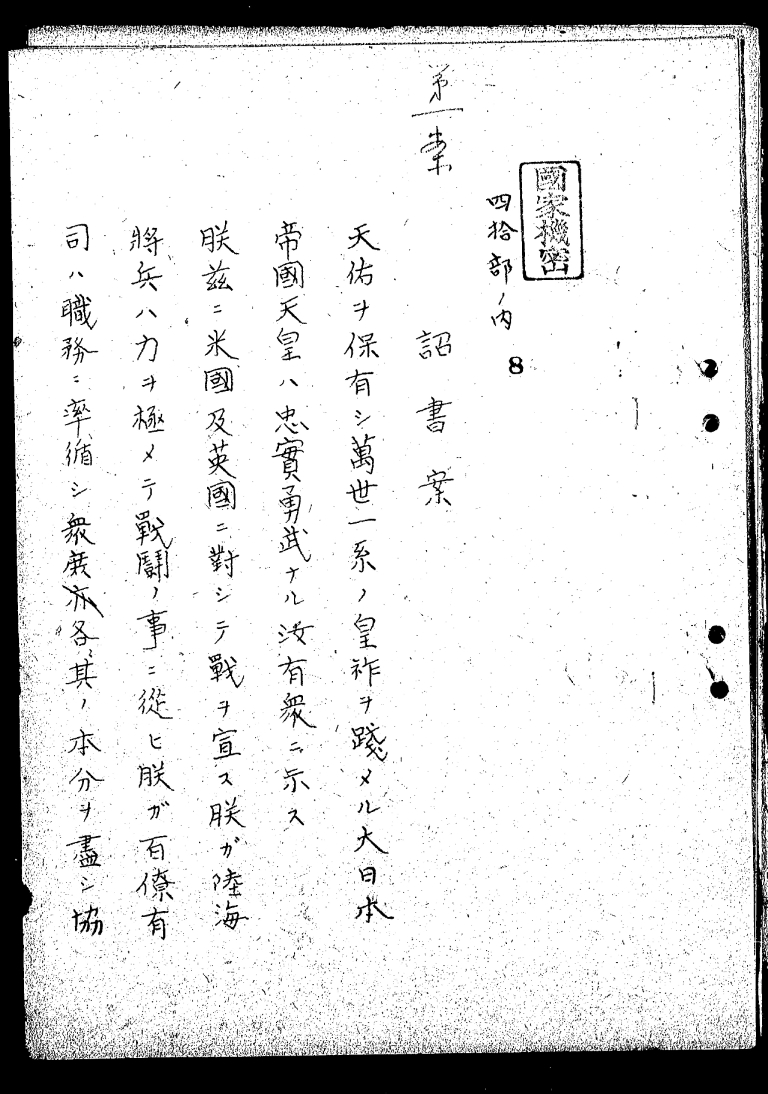 國家機密
四拾部ノ内
8
第一案
詔書案
天佑ヲ保有シ萬世一系ノ皇祚ヲ踐メル大日本
帝國天皇ハ忠實勇武ナル汝有衆ニ示ス
朕茲ニ米國及英國ニ對シテ戰ヲ宣ス朕ガ陸海
將兵ハ力ヲ極メテ戰鬪ノ事ニ從ヒ朕ガ百僚有
司ハ職務ニ率循シ衆庶亦各其ノ本分ヲ盡シ協